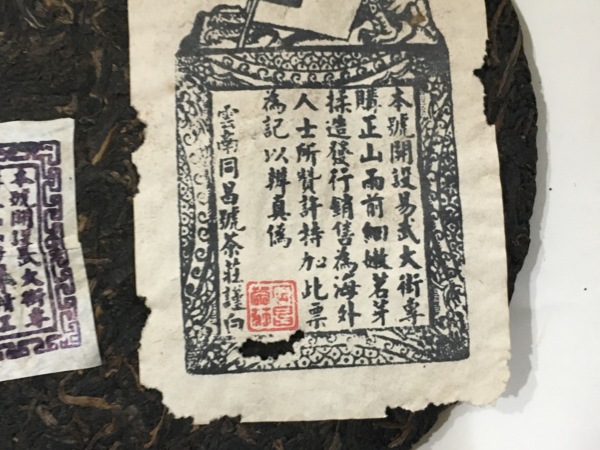 本號開設易武大街專
購正山雨前細嫩茗芽
採造發行銷售為海外
人士所贊許特加此票
為記以辨真偽
雲南同昌號茶莊謹白
本號開設易武大街專